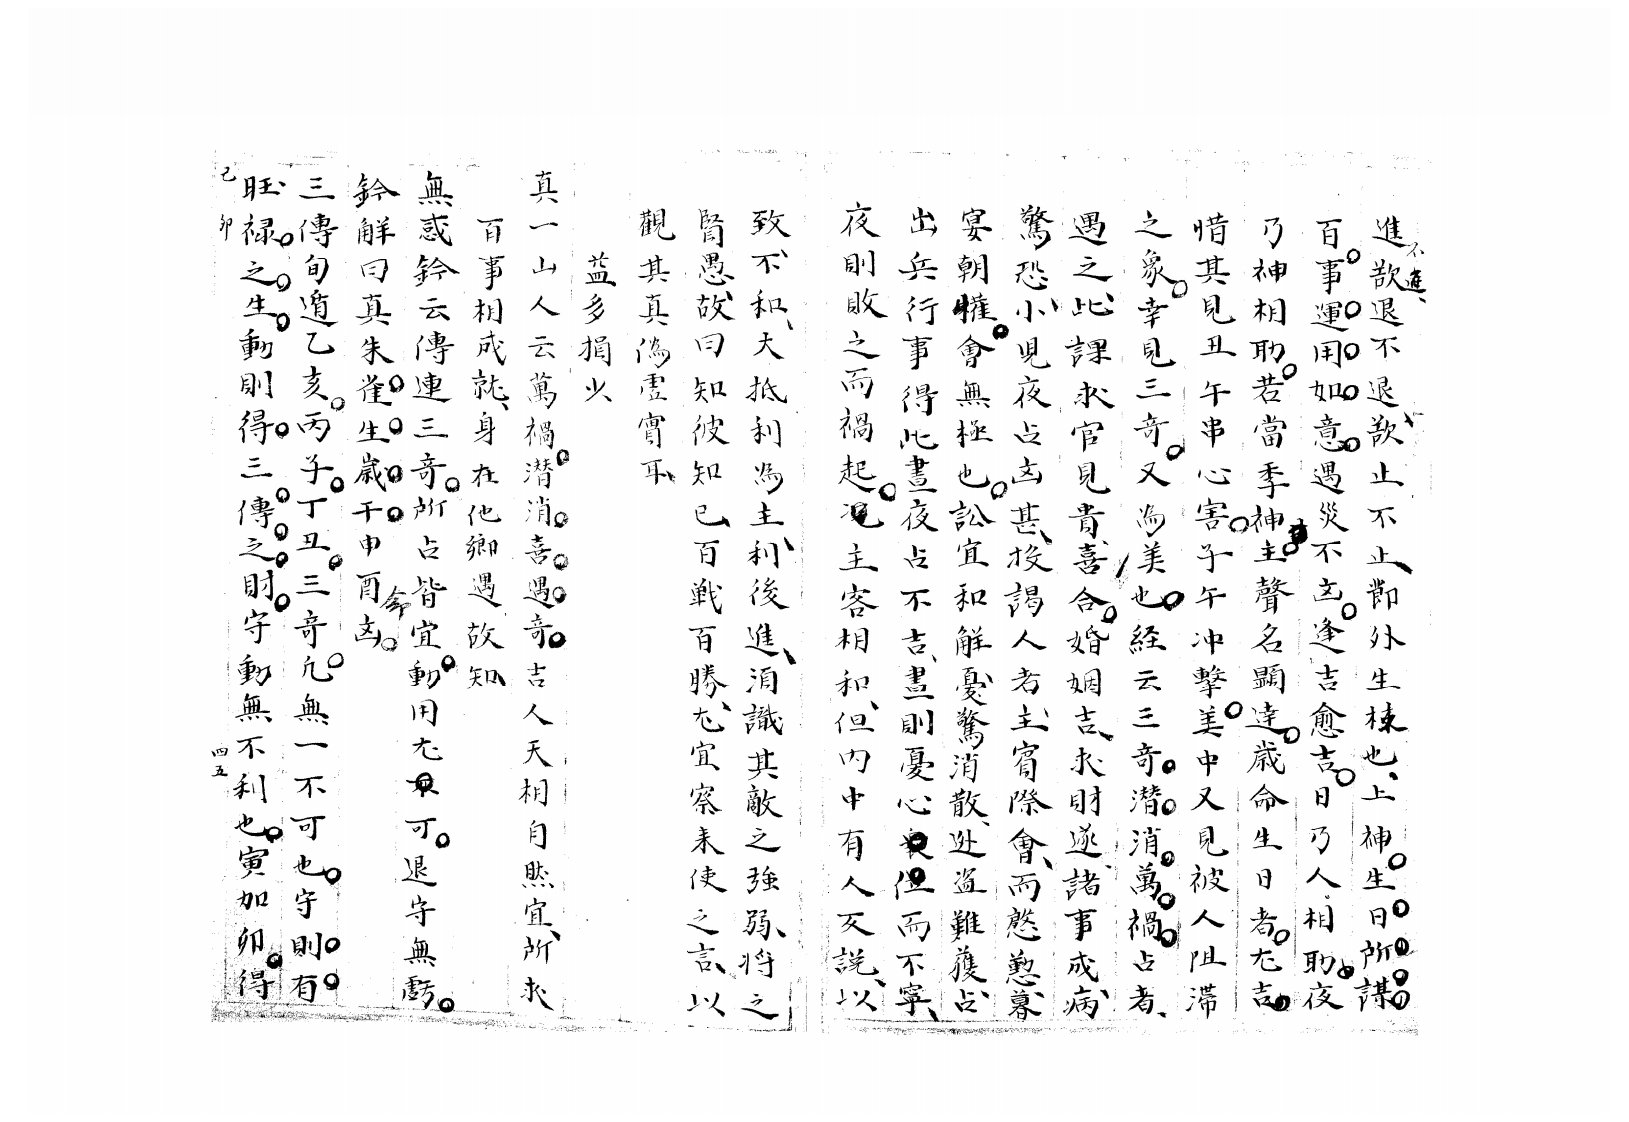 進不進、欲退不退、欲止不止、鄿外生棟也、上神生日所謀
百事運用如意遇災不㐫逢吉愈吉日乃人相助夜
乃神相助若當季神主聲名顯達歲命生日者尤吉
惜其見丑午串心害子午冲擊美中又見被人阻滯
之象幸見三奇又為美也経云三奇潛消萬禍占者、
遇之此課求官見貴喜合婚姻吉、求財遂諸事成病、
驚恐、小児夜占㐫甚、投謁人者主賓際會、而慇懃暮、
宴朝懽會無極也訟宜和解憂驚消散、迯盗難獲占
出兵行事得此晝夜占不吉、晝則憂心但而不寧、
夜則敗之而禍起况主客相和、但内中有人反說、以
致不和、大抵利為主、利後進、須識其敵之強弱、將之
賢愚、故曰知彼知己、百戦百勝、尤宜察来使之言、以
觀其真偽虛實耳、
葢多損少
真一山人云萬禍潛消喜遇奇吉人天相自然宜、所求
百事相成就、身在他鄉遇故知、
無惑鈐云傳連三奇所占皆宜動用尤可退守無虧
鈐解曰真朱雀生歲干申酉命㐫
三傳旬遁乙亥丙子丁丑三奇凢無一不可也守則有
旺禄之生動則得三傳之財守動無不利也寅加卯得
己卯
四五